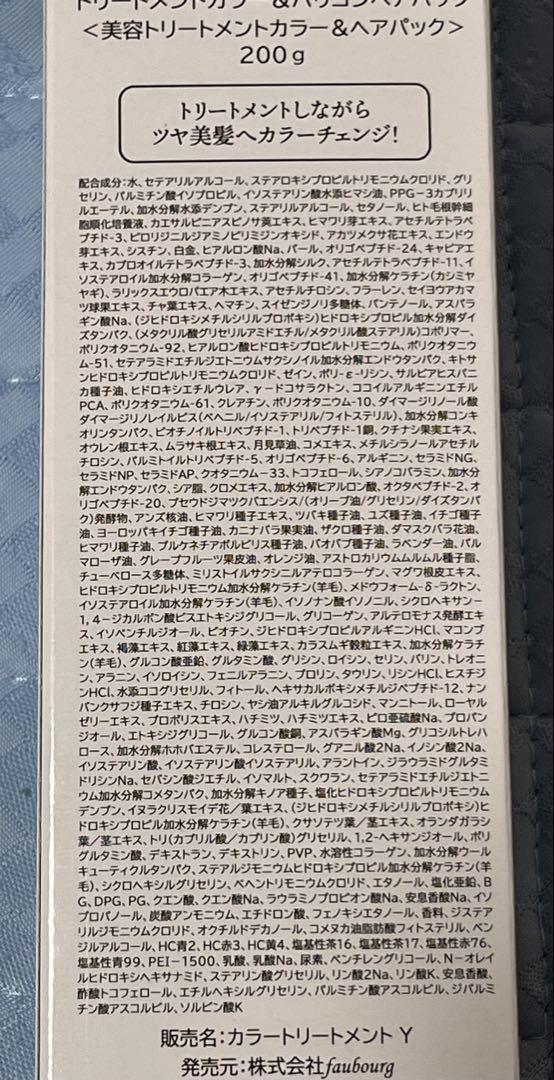 トリートメントカラー&バウコンヘアパック
<美容トリートメントカラー&ヘアパック>
200g
トリートメントしながら
ツヤ美髪へカラーチェンジ!
配合成分:水、セテアリルアルコール、ステアロキシプロピルトリモニウムクロリド、グリ
セリン、パルミチン酸イソプロピル、イソステアリン酸水添ヒマシ油、PPG-3カプリリ
ルエーテル、加水分解水添デンプン、ステアリルアルコール、セタノール、ヒト毛根幹細
胞順化培養液、カエサルピニアスピノサ莢エキス、ヒマワリ芽エキス、アセチルテトラペ
プチド-3、ピロリジニルジアミノピリミジンオキシド、アカツメクサ花エキス、エンドウ
芽エキス、シスチン、白金、ヒアルロン酸Na、パール、オリゴペプチド-24、キャビアエ
キス、カプロオイルテトラペプチド-3、加水分解シルク、アセチルテトラペプチド-11、イ
ソステアロイル加水分解コラーゲン、オリゴペプチド-41、加水分解ケラチン(カシミヤ
ヤギ)、ラリックスエウロパエア木エキス、アセチルチロシン、フラーレン、セイヨウアカマ
ツ球果エキス、チャ葉エキス、ヘマチン、スイゼンジノリ多糖体、パンテノール、アスパラ
ギン酸Na、(ジヒドロキシメチルシリルプロポキシ)ヒドロキシプロピル加水分解ダイ
ズタンパク、(メタクリル酸グリセリルアミドエチル/メタクリル酸ステアリル)コポリマー、
ポリクオタニウム-92、ヒアルロン酸ヒドロキシプロピルトリモニウム、ポリクオタニウ
ム-51、セテアラミドエチルジエトニウムサクシノイル加水分解エンドウタンパク、キトサ
ンヒドロキシプロピルトリモニウムクロリド、ゼイン、ポリ-ε-リシン、サルビアヒスパニ
カ種子油、ヒドロキシエチルウレア、γ-ドコサラクトン、ココイルアルギニンエチル
PCA、ポリクオタニウム-61、クレアチン、ポリクオタニウム-10、ダイマージリノール酸
ダイマージリノレイルビス(ベヘニル/イソステアリル/フィトステリル)、加水分解コンキ
オリンタンパク、ビオチノイルトリペプチド-1、トリペプチド-1銅、クチナシ果実エキス、
オウレン根エキス、ムラサキ根エキス、月見草油、コメエキス、メチルシラノールアセチル
チロシン、パルミトイルトリペプチド-5、オリゴペプチド-6、アルギニン、セラミドNG、
セラミドNP、セラミドAP、クオタニウム-33、トコフェロール、シアノコバラミン、加水分
解エンドウタンパク、シア脂、クロメエキス、加水分解ヒアルロン酸、オクタペプチド-2、オ
リゴペプチド-20、プセウドジマツクバエンシス/(オリーブ油/グリセリン/ダイズタンパ
ク)発酵物、アンズ核油、ヒマワリ種子エキス、ツバキ種子油、ユズ種子油、イチゴ種子
油、ヨーロッパキイチゴ種子油、カニナバラ果実油、ザクロ種子油、ダマスクバラ花油、
ヒマワリ種子油、プルケネチアボルビリス種子油、バオバブ種子油、ラベンダー油、パル
マローザ油、グレープフルーツ果皮油、オレンジ油、アストロカリウムムルムル種子脂、
チューベロース多糖体、ミリストイルサクシニルアテロコラーゲン、マグワ根皮エキス、
ヒドロキシプロピルトリモニウム加水分解ケラチン(羊毛)、メドウフォーム-δ-ラクトン、
イソステアロイル加水分解ケラチン(羊毛)、イソノナン酸イソノニル、シクロヘキサン-
1,4-ジカルボン酸ビスエトキシジグリコール、グリコーゲン、アルテロモナス発酵エキ
ス、イソペンチルジオール、ビオチン、ジヒドロキシプロピルアルギニンHCl、マコンブ
エキス、褐藻エキス、紅藻エキス、緑藻エキス、カラスムギ穀粒エキス、加水分解ケラチ
ン(羊毛)、グルコン酸亜鉛、グルタミン酸、グリシン、ロイシン、セリン、バリン、トレオニ
ン、アラニン、イソロイシン、フェニルアラニン、プロリン、タウリン、リシンHCl、ヒスチジ
ンHCl、水添ココグリセリル、フィトール、ヘキサカルボキシメチルジペプチド-12、ナン
バンクサフジ種子エキス、チロシン、ヤシ油アルキルグルコシド、マンニトール、ローヤル
ゼリーエキス、プロポリスエキス、ハチミツ、ハチミツエキス、ピロ亜硫酸Na、プロパン
ジオール、エトキシジグリコール、グルコン酸銅、アスパラギン酸Mg、グリコシルトレハ
ロース、加水分解ホホバエステル、コレステロール、グアニル酸2Na、イノシン酸2Na、
イソステアリン酸、イソステアリン酸イソステアリル、アラントイン、ジラウラミドグルタミ
ドリシンNa、セバシン酸ジエチル、イソマルト、スクワラン、セテアラミドエチルジエトニ
ウム加水分解コメタンパク、加水分解キノア種子、塩化ヒドロキシプロピルトリモニウム
デンプン、イヌラクリスモイデ花/葉エキス、(ジヒドロキシメチルシリルプロポキシ)ヒ
ドロキシプロピル加水分解ケラチン(羊毛)、クサソテツ葉/茎エキス、オランダガラシ
葉/茎エキス、トリ(カプリル酸/カプリン酸)グリセリル、1,2-ヘキサンジオール、ポリ
グルタミン酸、デキストラン、デキストリン、PVP、水溶性コラーゲン、加水分解ウール
キューティクルタンパク、ステアルジモニウムヒドロキシプロピル加水分解ケラチン(羊
毛)、シクロヘキシルグリセリン、ベヘントリモニウムクロリド、エタノール、塩化亜鉛、B
G、DPG、PG、クエン酸、クエン酸Na、ラウラミノプロピオン酸Na、安息香酸Na、イソ
プロパノール、炭酸アンモニウム、エチドロン酸、フェノキシエタノール、香料、ジステア
リルジモニウムクロリド、オクチルドデカノール、コメヌカ油脂肪酸フィトステリル、ベン
ジルアルコール、HC青2、HC赤3、HC黄4、塩基性茶16、塩基性茶17、塩基性赤76、
塩基性青99、PEI-1500、乳酸、乳酸Na、尿素、ペンチレングリコール、N-オレイ
ルヒドロキシヘキサナミド、ステアリン酸グリセリル、リン酸2Na、リン酸K、安息香酸、
酢酸トコフェロール、エチルヘキシルグリセリン、パルミチン酸アスコルビル、ジパルミ
チン酸アスコルビル、ソルビン酸K
販売名:カラートリートメント Y
発売元:株式会社faubourg